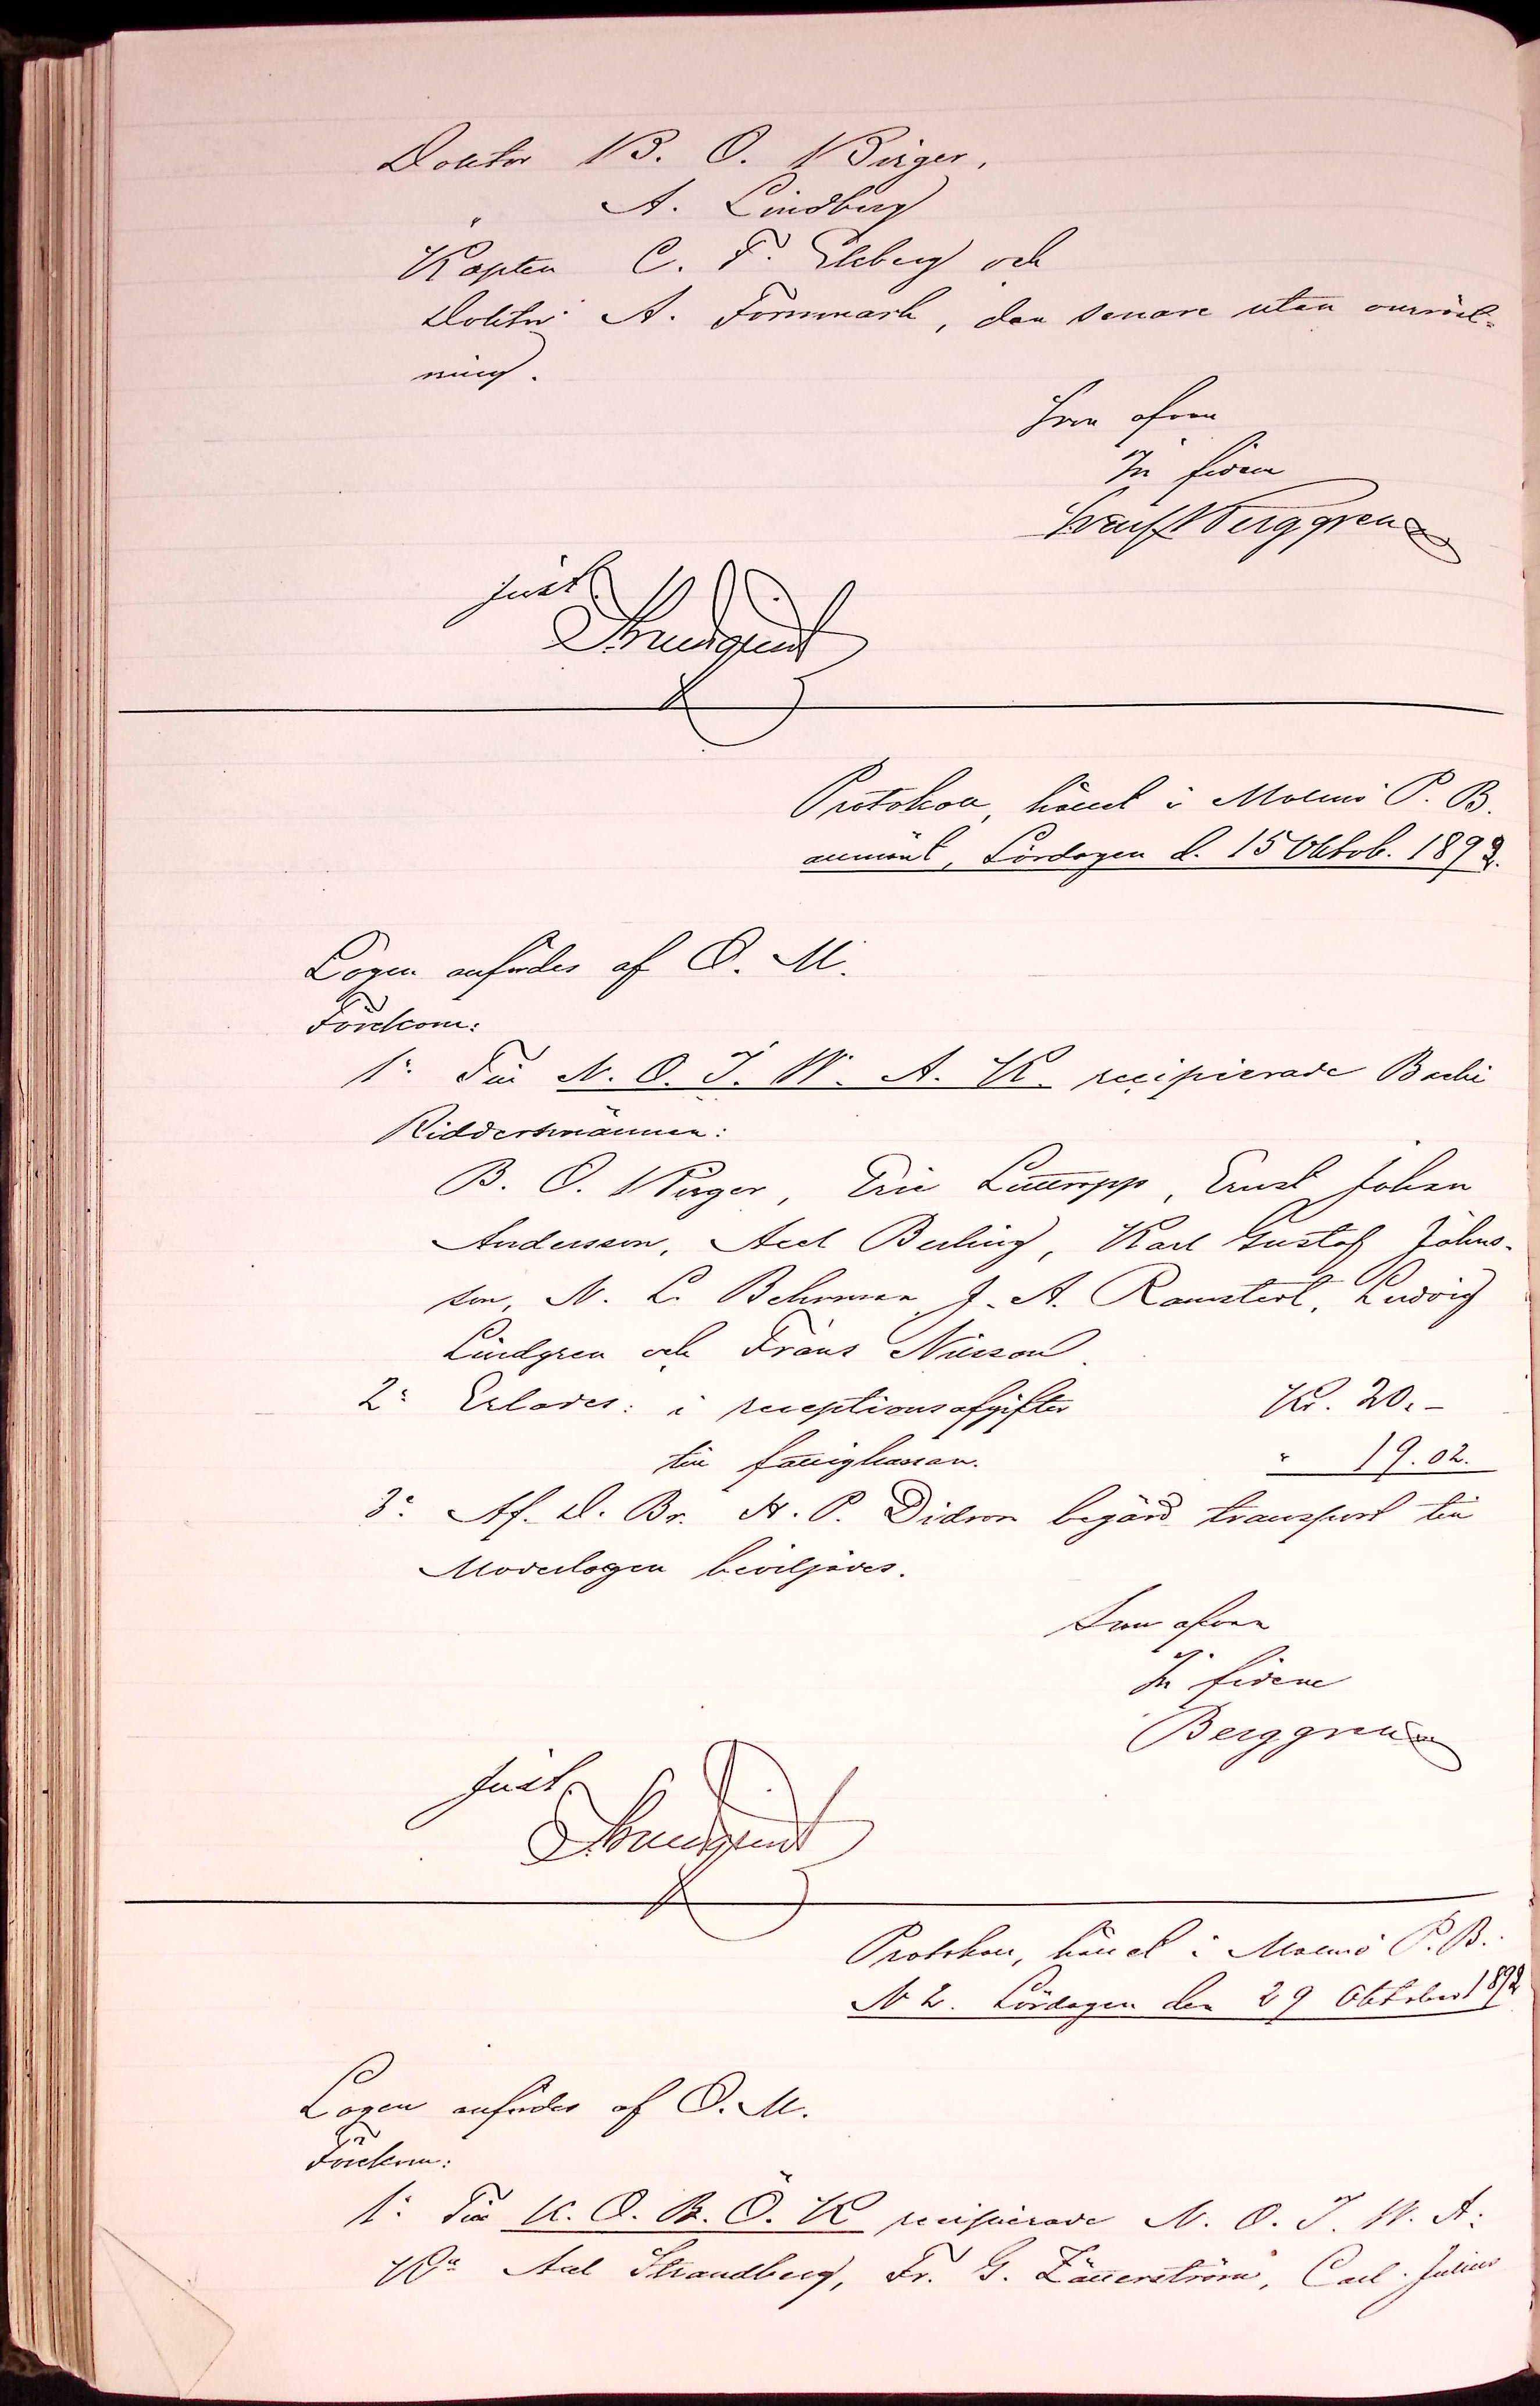 Doktor B. O. Birger,
" A. Lindberg
Kapten C. F. Ekberg och
Doktor A. Tornmark, den senare utan omröst-
ning.
Som ofvan
In fidem
Berggren
Just.
Protokoll, hållet i Malmö P. B.
allmänt, Lördagen d. 15 Oktob. 1892.
Logen anfördes af O. M.
Förekom:
1:o Till N. O. J. W. A. K. recipierade Bacchi
Riddersmännen:
B. O. Birger, Eric Lutteropp, Ernst Johan
Andersson, Axel Berling, Karl Gustaf Johns-
son, N. L. Behrman, J. A. Ramstedt, Ludvig
Lindgren och Frans Nilsson.
2:o Erlades: i receptionsafgifter Kr. 20.-
till fattigkassan. " 19.02.
3:o Af D. Br. H. P. Didron begärd transport till
Moderlogen beviljades.
Som ofvan
In fidem
Berggren
Just.
Protokoll, hållet i Malmö P. B.
N 2. Lördagen den 29 Oktober 1892
Logen anfördes af O. M.
Förekom:
1:o Till K. O. B. Ö. K recipierade N. O. J. W. A:
K:a Axel Strandberg, Fr. G. Zätterström, Carl Julius